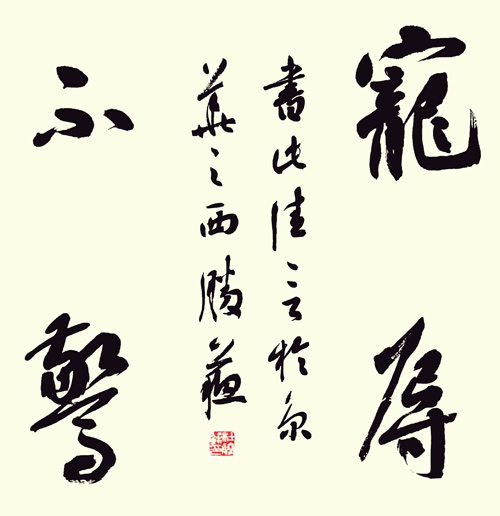 寵辱
書此佳言於京
華之西勝
不驚